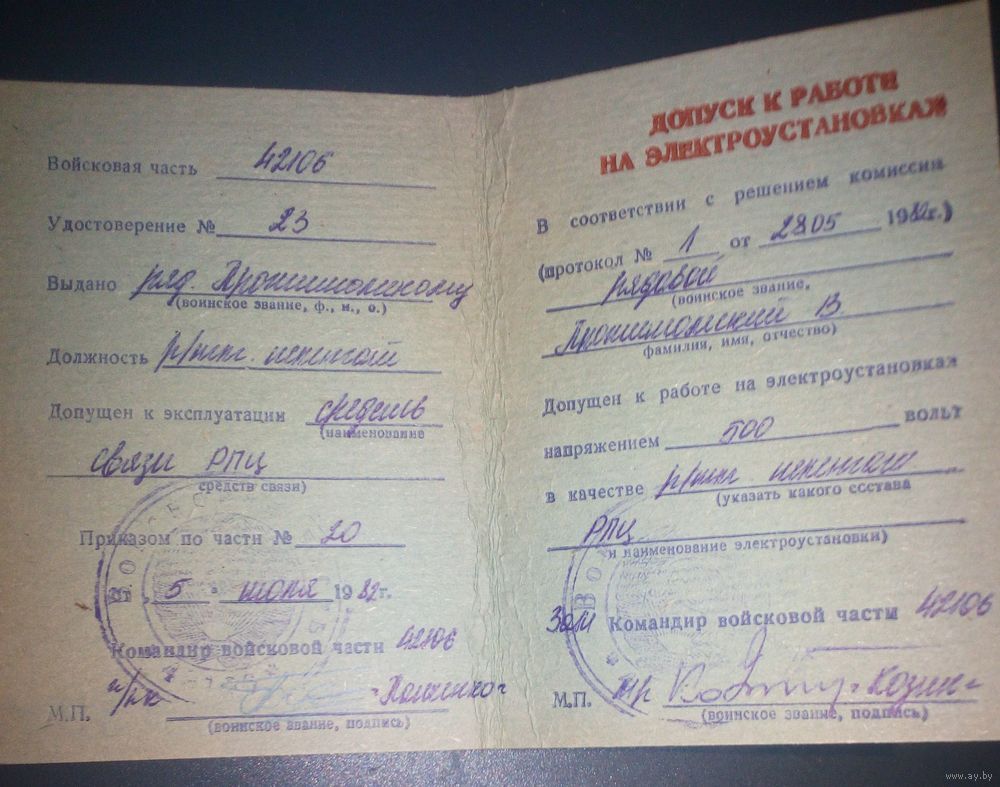 Войсковая часть 42106
Удостоверение № 23
Выдано ряд.
(воинское звание, ф., и., о.)
Должность
Допущен к эксплуатации средств
(наименование
связи РПЦ
средств связи)
Приказом по части № 20
5 июля 1982г.
Командир войсковой части 42106
п/пк
М.П.
(воинское звание, подпись)
ДОПУСК К РАБОТЕ
НА ЭЛЕКТРОУСТАНОВКАХ
В соответствии с решением комиссии
(протокол № 1 от 28.05 1982г.)
рядовой
(воинское звание,
В.
фамилия, имя, отчество)
Допущен к работе на электроустановках
напряжением 500 вольт
в качестве
(указать какого состава
РПЦ
и наименование электроустановки)
Зам Командир войсковой части 42106
М.П. м-р "Козик"
(воинское звание, подпись)
www.ay.by